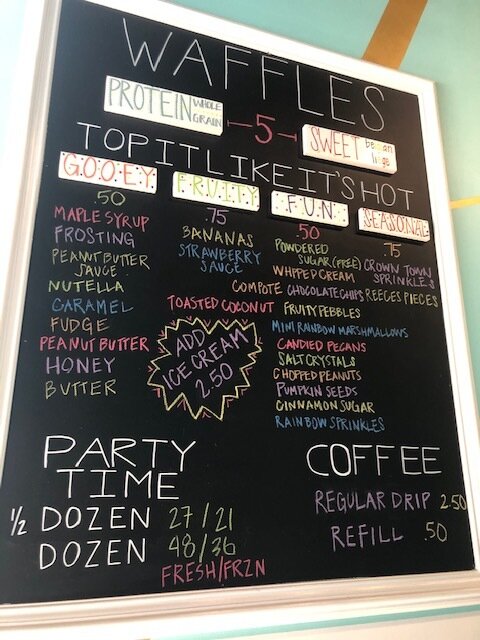 WAFFLES
PROTEIN WHOLE GRAIN
5
SWEET
TOP IT LIKE IT'S HOT
GOOEY
.50
MAPLE SYRUP
FROSTING
PEANUT BUTTER
SAUCE
NUTELLA
CARAMEL
FUDGE
PEANUT BUTTER
HONEY
BUTTER
FRUITY
.75
BANANAS
STRAWBERRY
SAUCE
COMPOTE
TOASTED COCONUT
FUN
.50
POWDERED
SUGAR (FREE)
WHIPPED CREAM
CHOCOLATE CHIPS
FRUITY PEBBLES
MINI RAINBOW MARSHMALLOWS
CANDIED PECANS
SALT CRYSTALS
CHOPPED PEANUTS
PUMPKIN SEEDS
CINNAMON SUGAR
RAINBOW SPRINKLES
SEASONAL
.75
CROWN TOWN
SPRINKLES
REECES PIECES
ADD
ICE CREAM
2.50
PARTY
TIME
1/2 DOZEN 27/21
DOZEN 48/36
FRESH/FRZN
COFFEE
REGULAR DRIP 2.50
REFILL .50